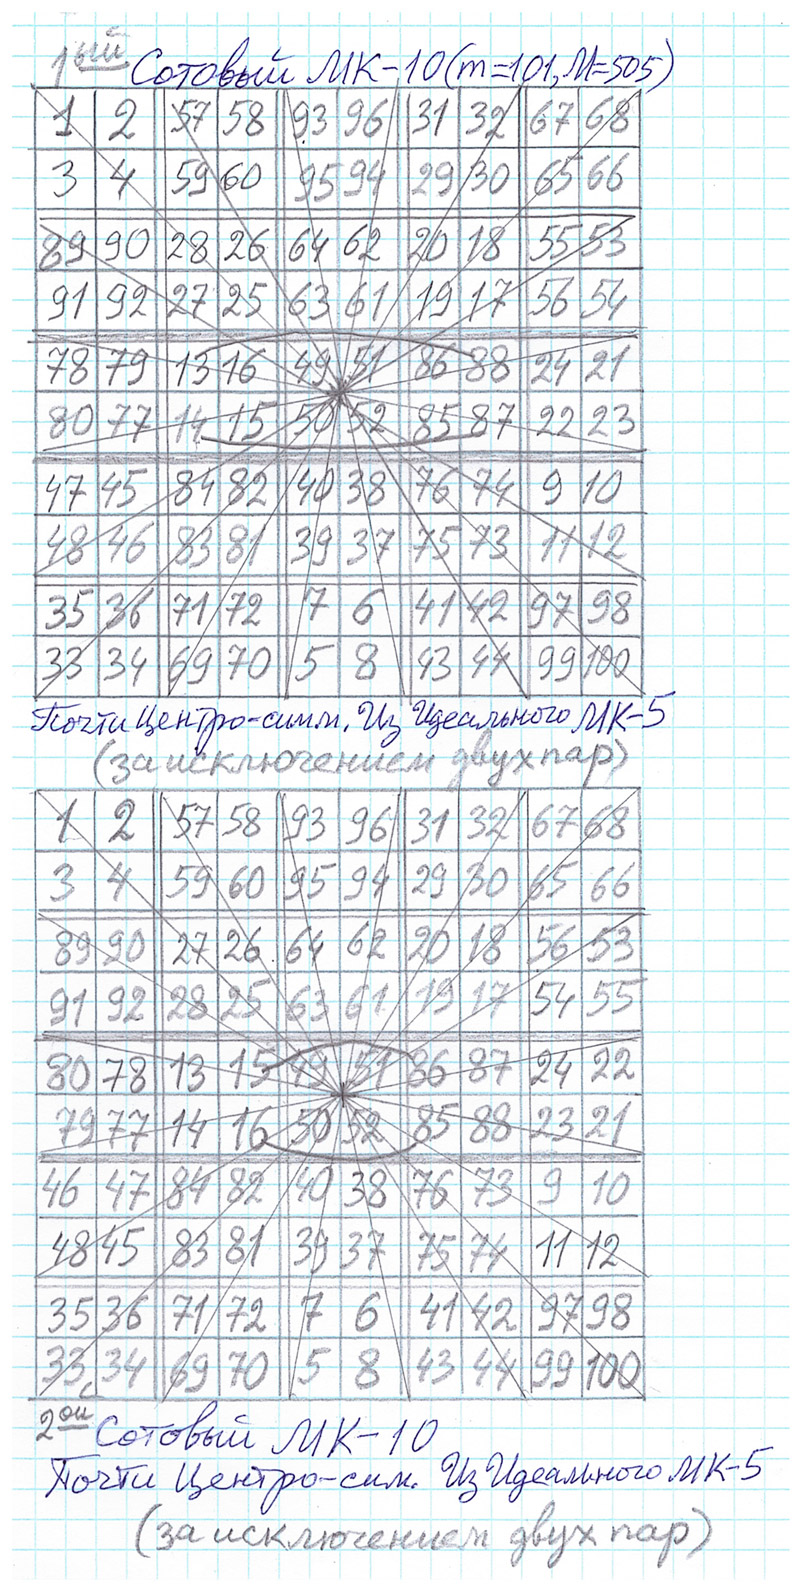 1ый Сотовый МК-10 (m=101, M=505)
1 2 57 58 93 96 31 32 67 68
3 4 59 60 95 94 29 30 65 66
89 90 28 26 64 62 20 18 55 53
91 92 27 25 63 61 19 17 56 54
78 79 13 16 49 51 86 88 24 21
80 77 14 15 50 52 85 87 22 23
47 45 84 82 40 38 76 74 9 10
48 46 83 81 39 37 75 73 11 12
35 36 71 72 7 6 41 42 97 98
33 34 69 70 5 8 43 44 99 100
Почти Центро-симм. Из Идеального МК-5
(за исключением двух пар)
1 2 57 58 93 96 31 32 67 68
3 4 59 60 95 94 29 30 65 66
89 90 27 26 64 62 20 18 56 53
91 92 28 25 63 61 19 17 54 55
80 78 13 15 49 51 86 87 24 22
79 77 14 16 50 52 85 88 23 21
46 47 84 82 40 38 76 73 9 10
48 45 83 81 39 37 75 74 11 12
35 36 71 72 7 6 41 42 97 98
33 34 69 70 5 8 43 44 99 100
2ой Сотовый МК-10
Почти Центро-сим. Из Идеального МК-5
(за исключением двух пар)